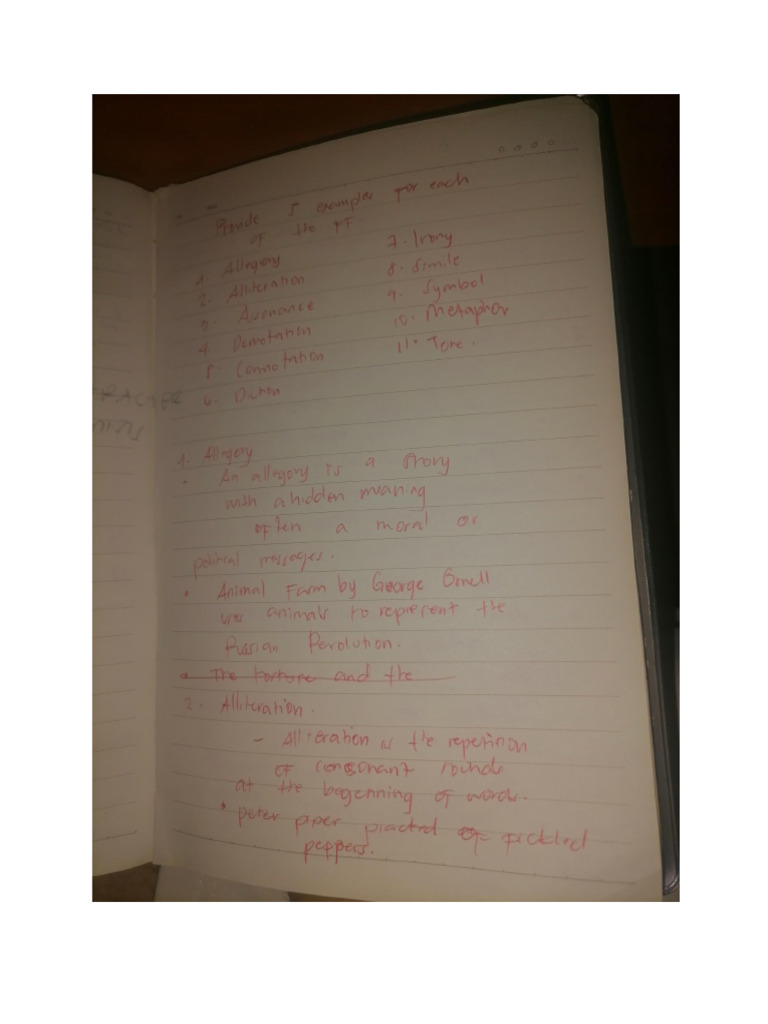 Provide 5 examples for each
of the ff
1. Allegory
2. Alliteration
3. Assonance
4. Denotation
5. Connotation
6. Diction
7. Irony
8. Simile
9. Symbol
10. Metaphor
11. Tone.
1. Allegory
• An allegory is a story
with a hidden meaning
often a moral or
political messages.
• Animal Farm by George Orwell
uses animals to represent the
Russian Revolution.
• The torture and the
2. Alliteration.
- Alliteration is the repetition
of consonant sounds
at the beginning of words.
• peter piper of pickled
peppers.